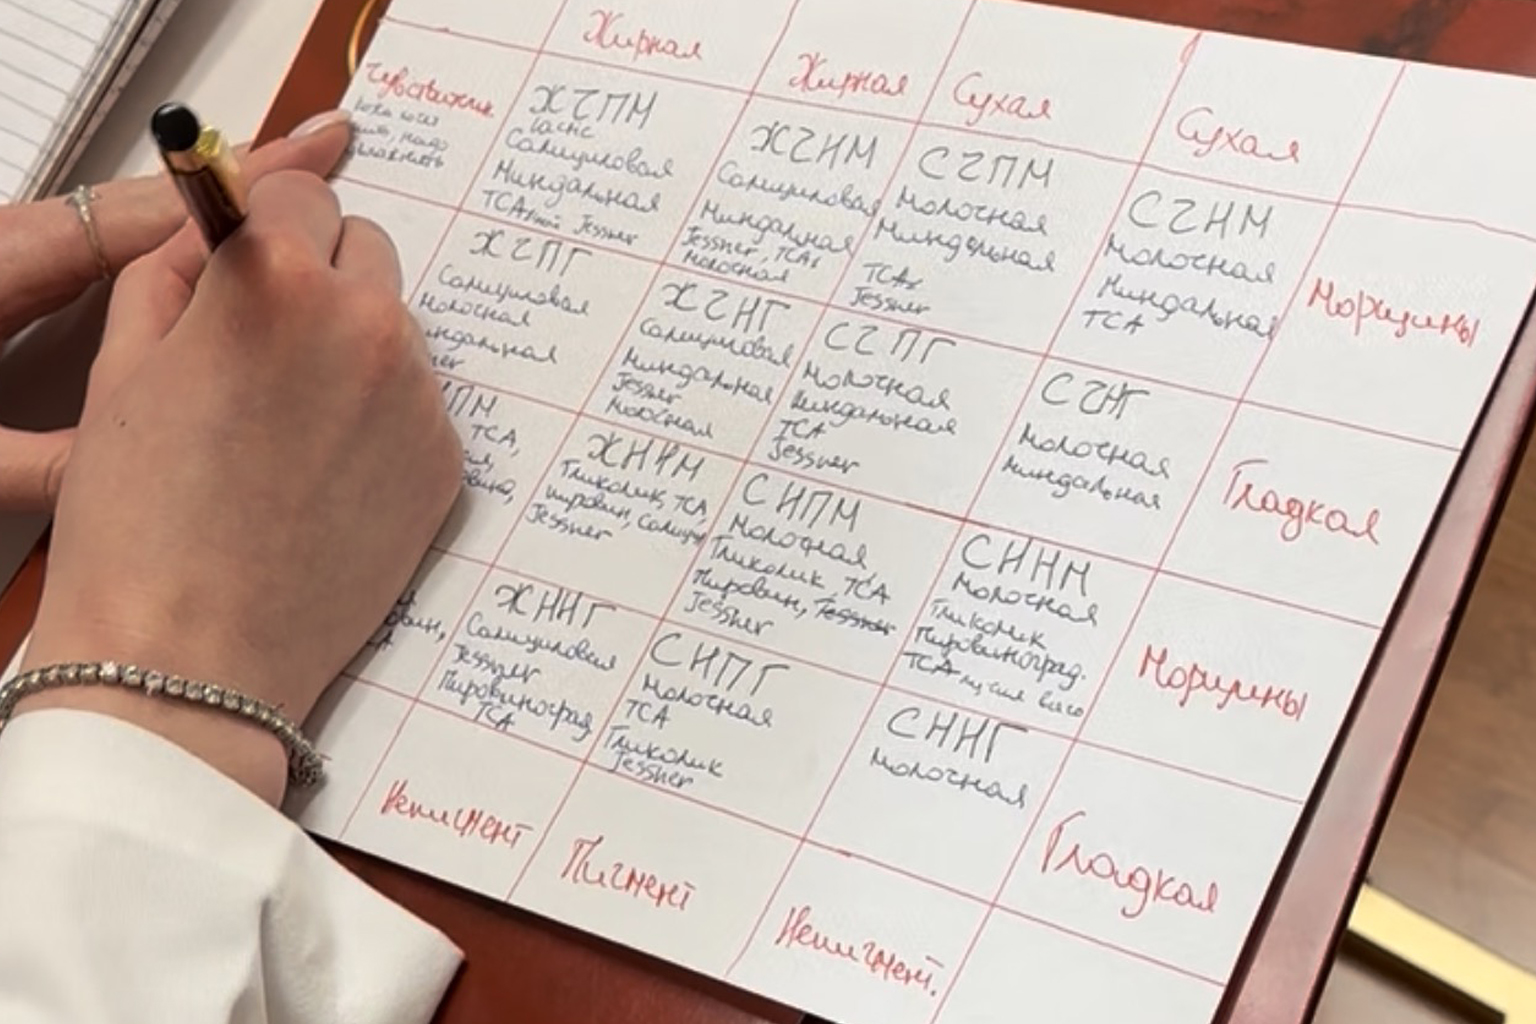 Жирная
Жирная
Сухая
Сухая
Чувствительн.
ЖЧПМ
Салициловая
Миндальная
TCA
Jessner
ЖЧНМ
Салициловая
Миндальная
Jessner, TCA
Молочная
СЧПМ
Молочная
Миндальная
TCA
Jessner
СЧНМ
Молочная
Миндальная
TCA
Морщины
ЖЧПГ
Салициловая
Молочная
ЖЧНГ
Салициловая
Миндальная
Jessner
Молочная
СЧПГ
Молочная
Миндальная
TCA
Jessner
СЧНГ
Молочная
Миндальная
Гладкая
TCA,
ЖННМ
Гликолик, TCA,
пировин, Салицил
Jessner
СНПМ
Молочная
Гликолик TCA
Пировин, Jessner
Jessner
СННМ
Молочная
Гликолик
Пировиноград.
TCA
Морщины
ЖННГ
Салициловая
Jessner
Пировиноград
TCA
СНПГ
Молочная
TCA
Гликолик
Jessner
СННГ
Молочная
Гладкая
Непигмент
Пигмент
Непигмент.